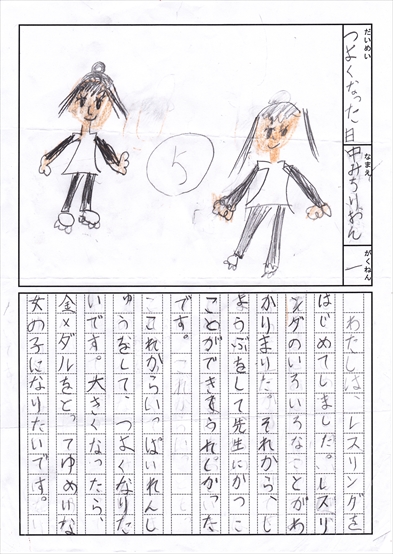 だいめい
つよくなった日
なまえ
中みちりおん
がくねん
一
5
わたしは、レスリングを
はじめてしました。レスリ
ングのいろいろなことがわ
かりまりた。それから、し
ょうぶをして先生にかつこ
ことができてうれしかった
です。
これからいっぱいれんし
ゅうをして、つよくなりた
いです。大きくなったら、
金メダルをとってゆめいな
女の子になりたいです。